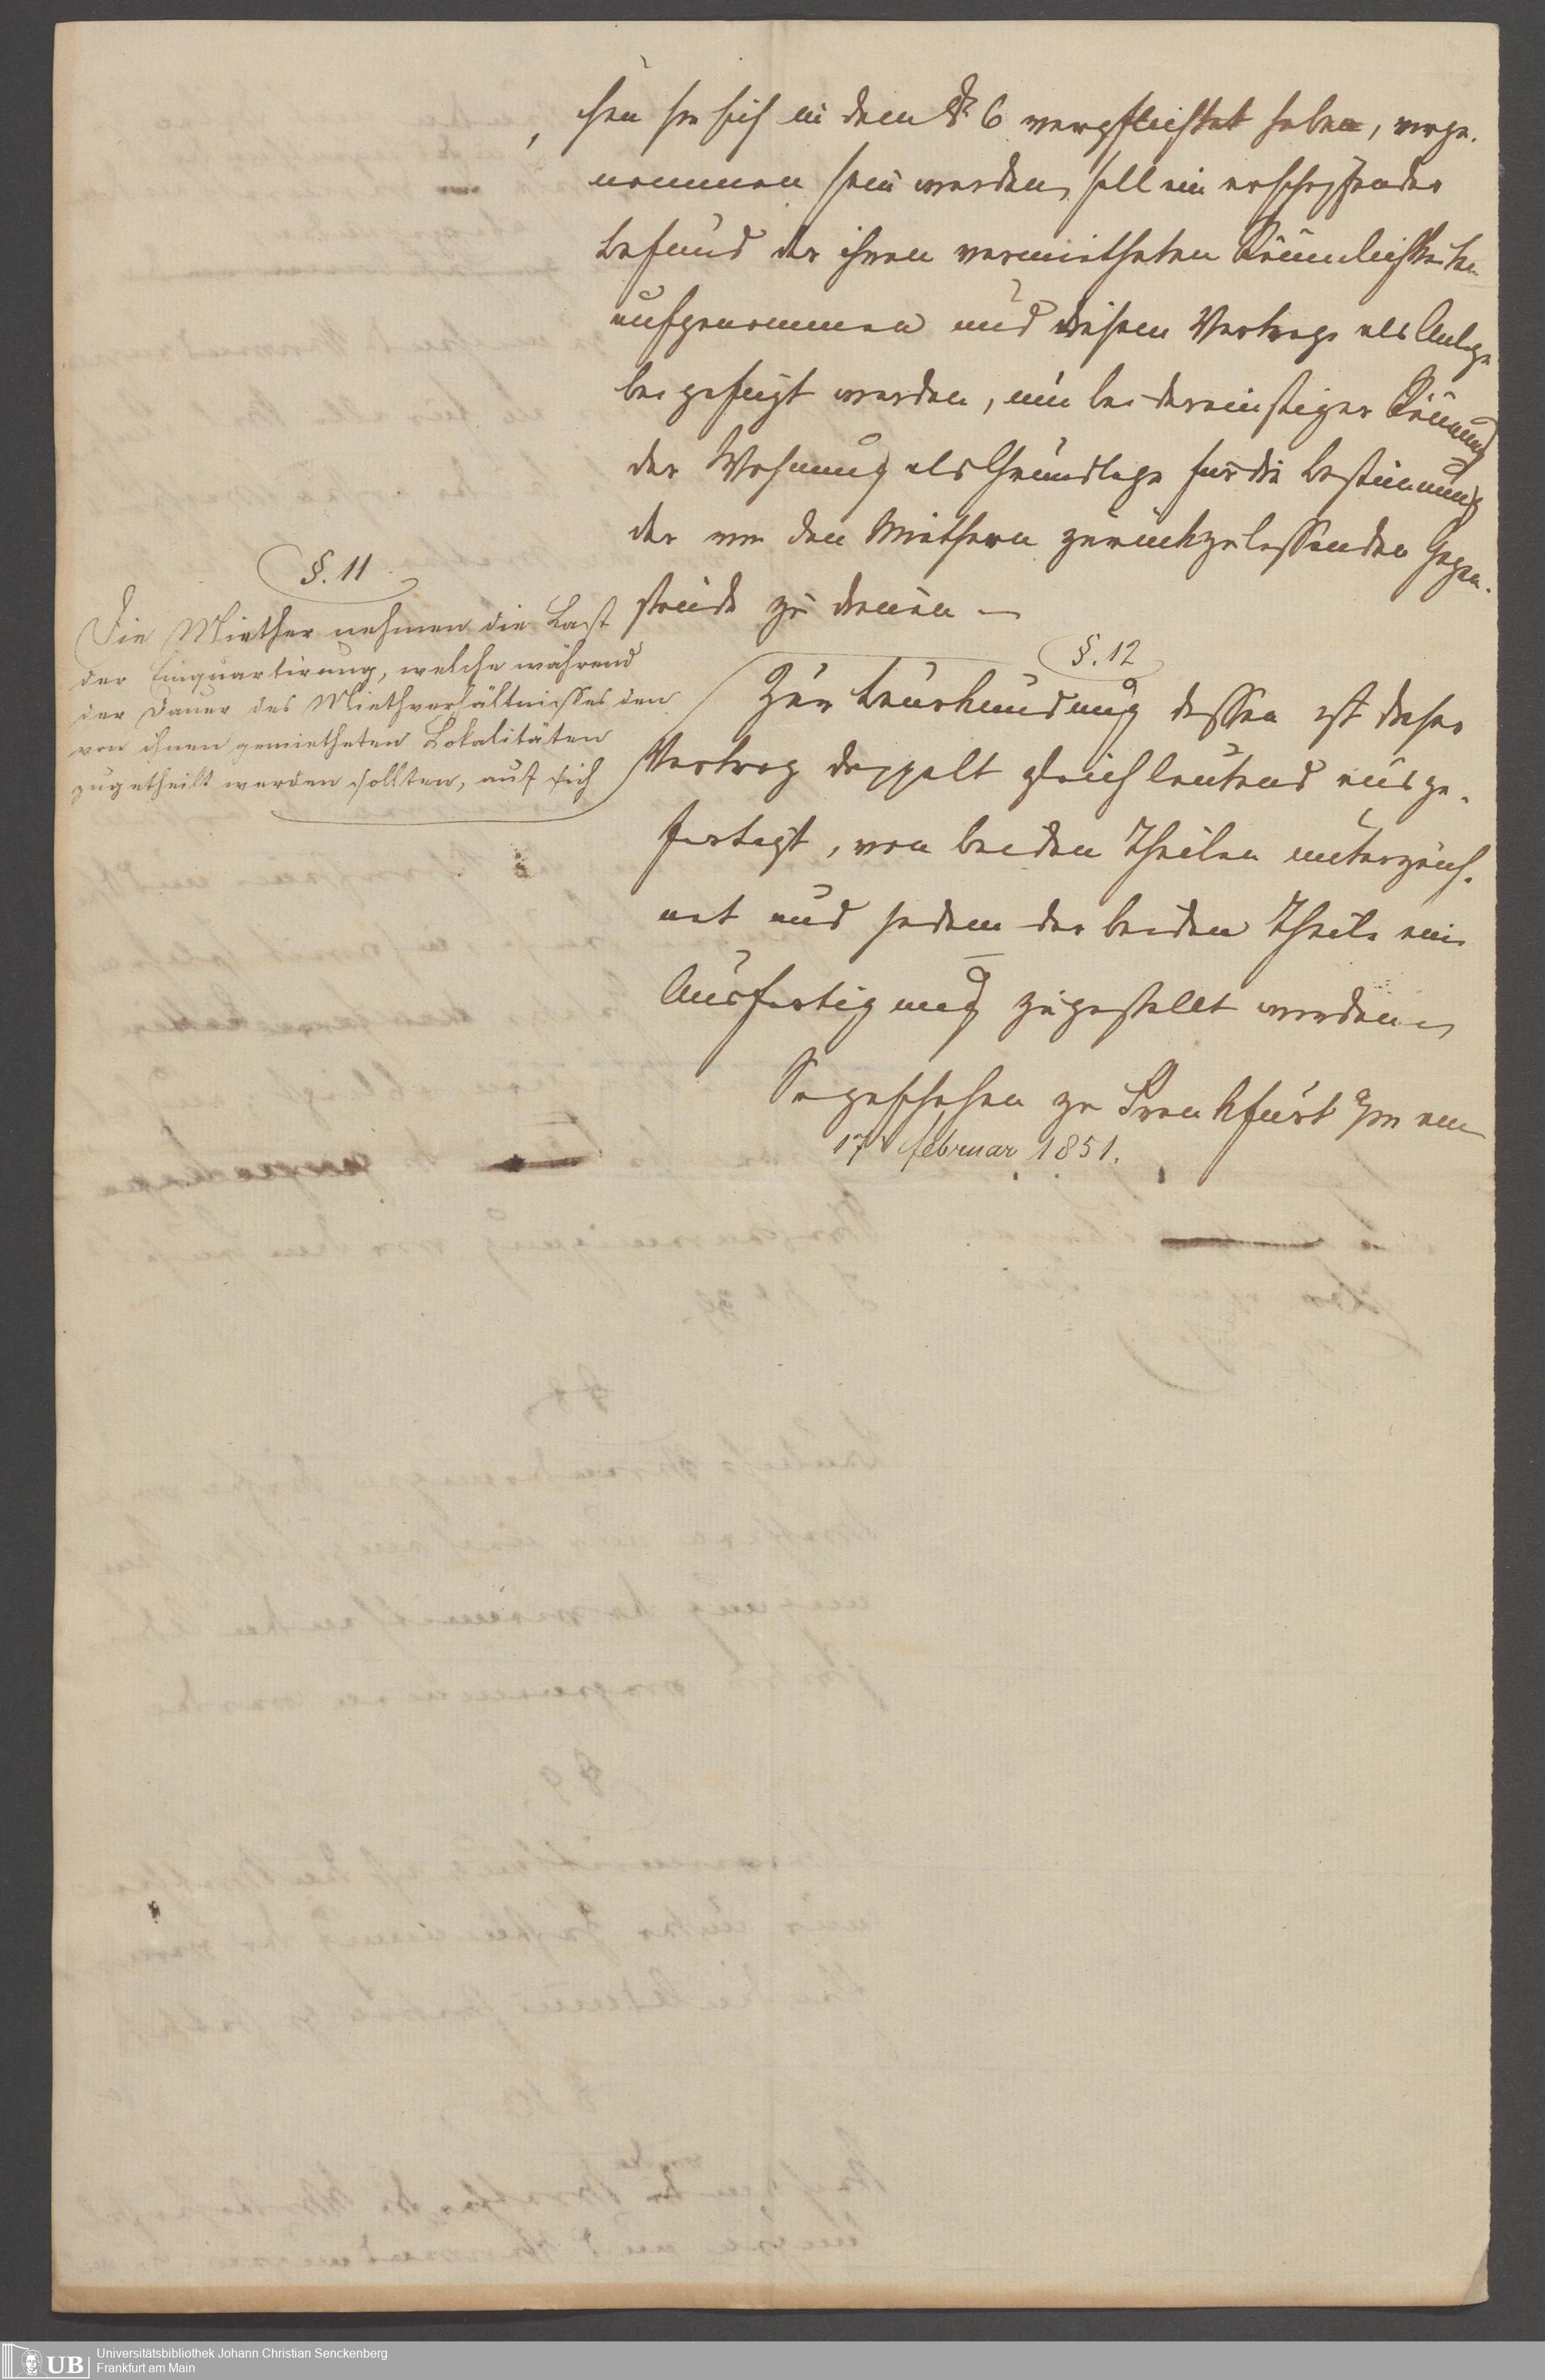 chen sie sich in dem § 6 verpflichtet haben, vorge-
nommen sein werden, soll ein erschöpfender
Befund der ihnen vermietheten Räumlichkeiten
aufgenommen und diesem Vertrage als Anlage
beigefügt werden, um bei dereinstiger Räumung
der Wohnung als Grundlage für die Bestimmung
der von den Miethern zurückzulassenden Gegen-
stände zu dienen
§. 11
Die Miether nehmen die Last
der Einquartirung, welche während
der Dauer des Miethverhältnisses den
von ihnen gemietheten Lokalitäten
zugetheilt werden sollten, auf sich
§. 12
Zur Beurkundung dessen ist dieser
Vertrag doppelt gleichlautend ausge-
fertigt, von beiden Theilen unterzeich-
net und jedem der beiden Theile eine
Ausfertigung zugestellt worden
So geschehen zu Frankfurt a/m am
17t februar 1851.
UB
Universitätsbibliothek Johann Christian Senckenberg
Frankfurt am Main